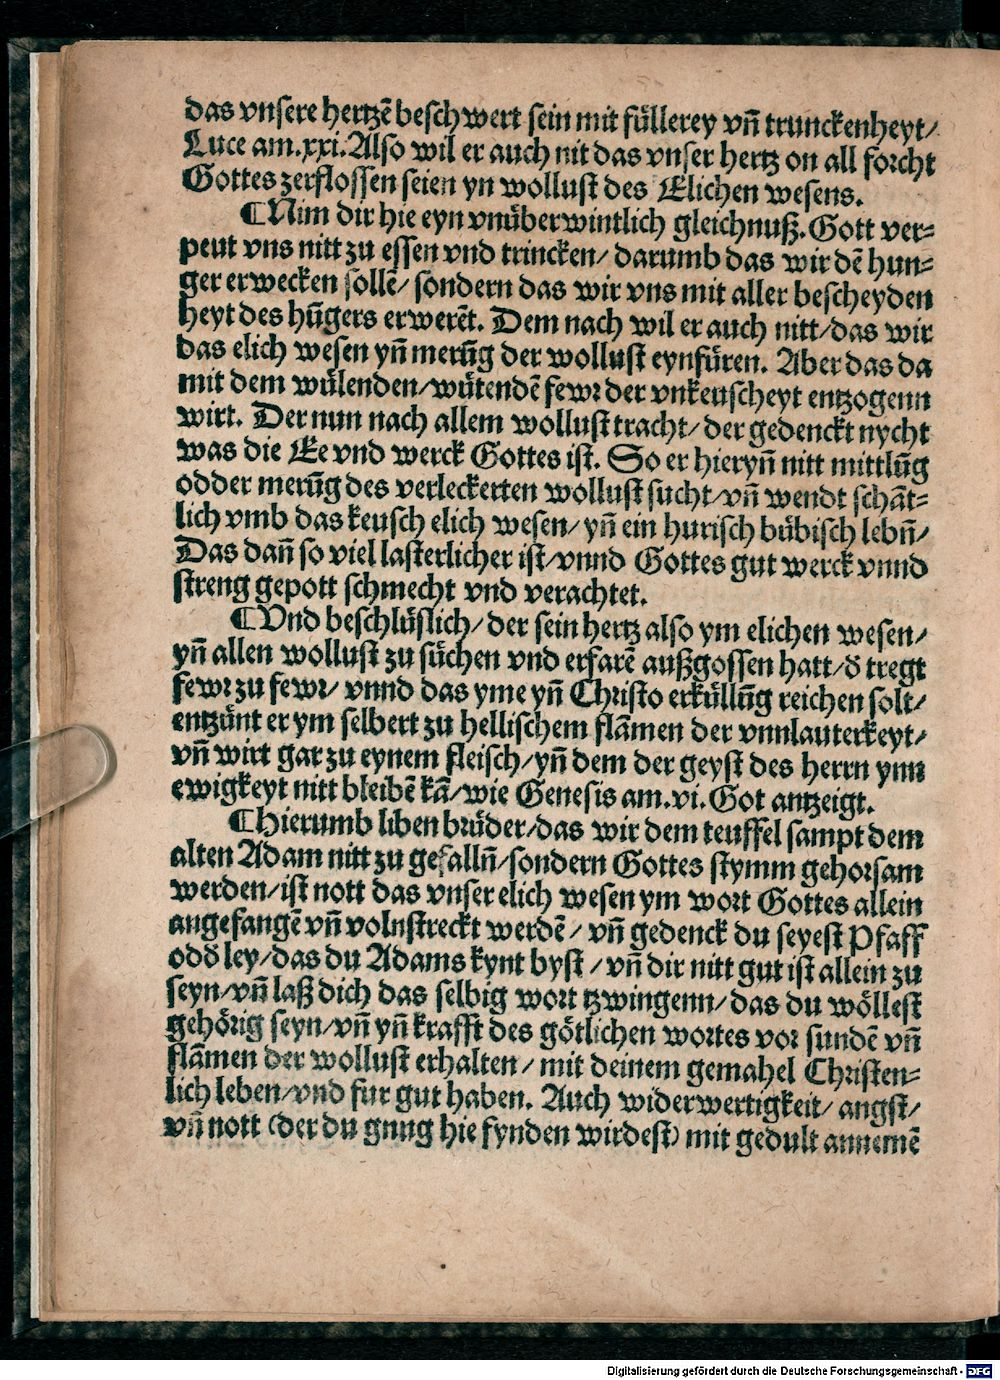 das vnsere hertzē beschwert sein mit füllerey vn̄ trunckenheyt/
Luce am.xxi.Also wil er auch nit das vnser hertz on all forcht
Gottes zerflossen seien yn wollust des Elichen wesens.
¶Nim dir hie eyn vnüberwintlich gleichnuß.Gott ver⸗
peut vns nitt zu essen vnd trincken/ darumb das wir dē hun⸗
ger erwecken sollē/ sondern das wir vns mit aller bescheyden
heyt des hūgers erwerēt. Dem nach wil er auch nitt/das wir
das elich wesen yn̄ merūg der wollust eynfüren. Aber das da
mit dem wülenden/wütendē fewr der vnkeuscheyt entzogenn
wirt. Der nun nach allem wollust tracht/ der gedenckt nycht
was die Ee vnd werck Gottes ist. So er hieryn̄ nitt mittlūg
odder merūg des verleckerten wollust sucht/vn̄ wendt schāt⸗
lich vmb das keusch elich wesen/ yn̄ ein hurisch bübisch lebn̄/
Das dan̄ so viel lasterlicher ist/vnnd Gottes gut werck vnnd
streng gepott schmecht vnd verachtet.
¶Vnd beschlüslich/ der sein hertz also ym elichen wesen/
yn̄ allen wollust zu süchen vnd erfarē außgossen hatt/ð tregt
fewr zu fewr/ vnnd das yme yn̄ Christo erküllūg reichen solt/
entzünt er ym selbert zu hellischem flāmen der vnnlauterkeyt/
vn̄ wirt gar zu eynem fleisch/yn̄ dem der geyst des herrn ynn
ewigkeyt nitt bleibē kā/wie Genesis am.vi.Got antzeigt.
¶Hierumb liben brüder/das wir dem teuffel sampt dem
alten Adam nitt zu gefalln̄/sondern Gottes stymm gehorsam
werden/ist nott das vnser elich wesen ym wort Gottes allein
angefangē vn̄ volnstreckt werdē/ vn̄ gedenck du seyest Pfaff
odð ley/das du Adams kynt byst/vn̄ dir nitt gut ist allein zu
seyn/vn̄ laß dich das selbig wort tzwingenn/das du wöllest
gehörig seyn/vn̄ yn̄ krafft des götlichen wortes vor sundē vn̄
flāmen der wollust erhalten/ mit deinem gemahel Christen⸗
lich leben/vnd fur gut haben. Auch widerwertigkeit/ angst/
vn̄ nott (der du gnug hie fynden wirdest) mit gedult annemē
Digitalisierung gefördert durch die Deutsche Forschungsgemeinschaft - DFG